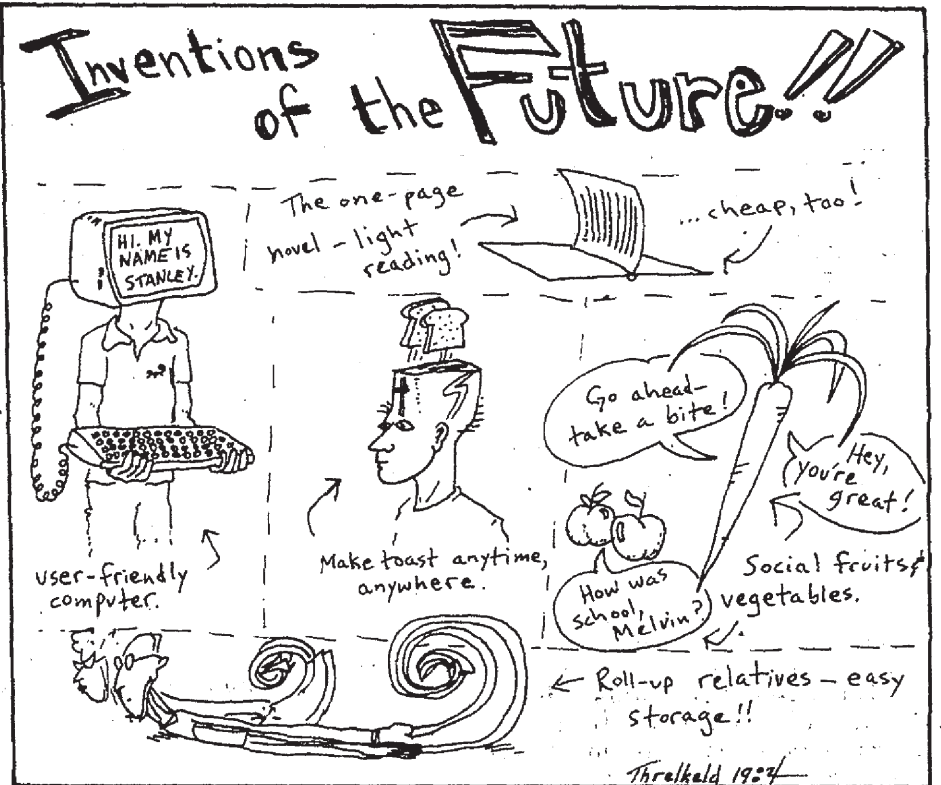 Inventions
of the Future!!
The one-page
novel – light
reading!
...cheap, too!
HI. MY
NAME IS
STANLEY.
user-friendly
computer.
Make toast anytime,
anywhere.
Go ahead–
take a bite!
Hey,
you're
great!
How was
school,
Melvin?
Social fruits &
vegetables.
Roll-up relatives – easy
storage!!
Threlkeld